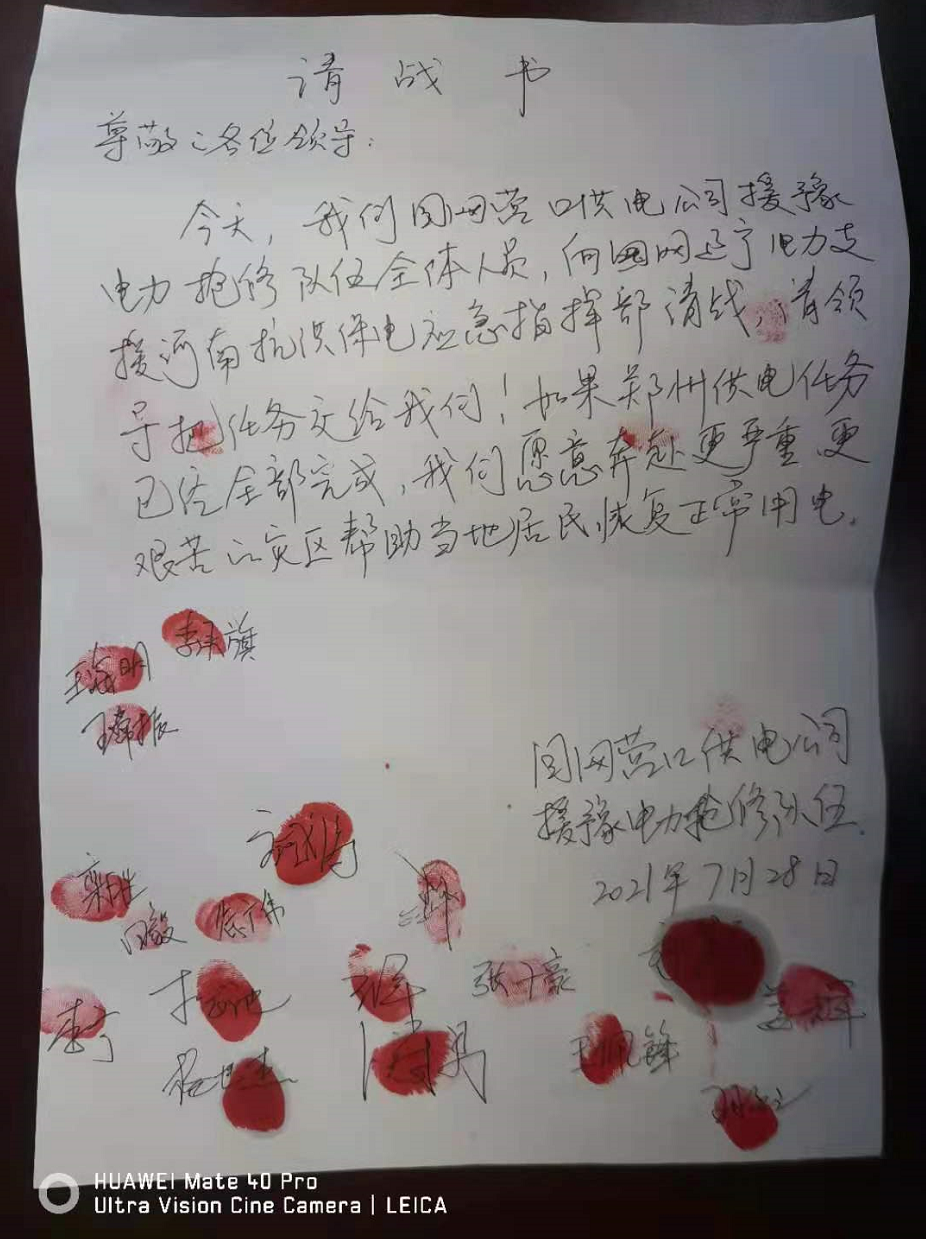 请战书
尊敬的各位领导：
今天，我们国网营口供电公司援豫
电力抢修队伍全体人员，向国网辽宁电力支
援河南抗洪保电应急指挥部请战，请领
导把任务交给我们！如果郑州供电任务
已经全部完成，我们愿意奔赴更严重、更
艰苦的灾区帮助当地居民恢复正常用电。
王海明
国网营口供电公司
援豫电力抢修队伍
2021年7月28日
HUAWEI Mate 40 Pro
Ultra Vision Cine Camera | LEICA